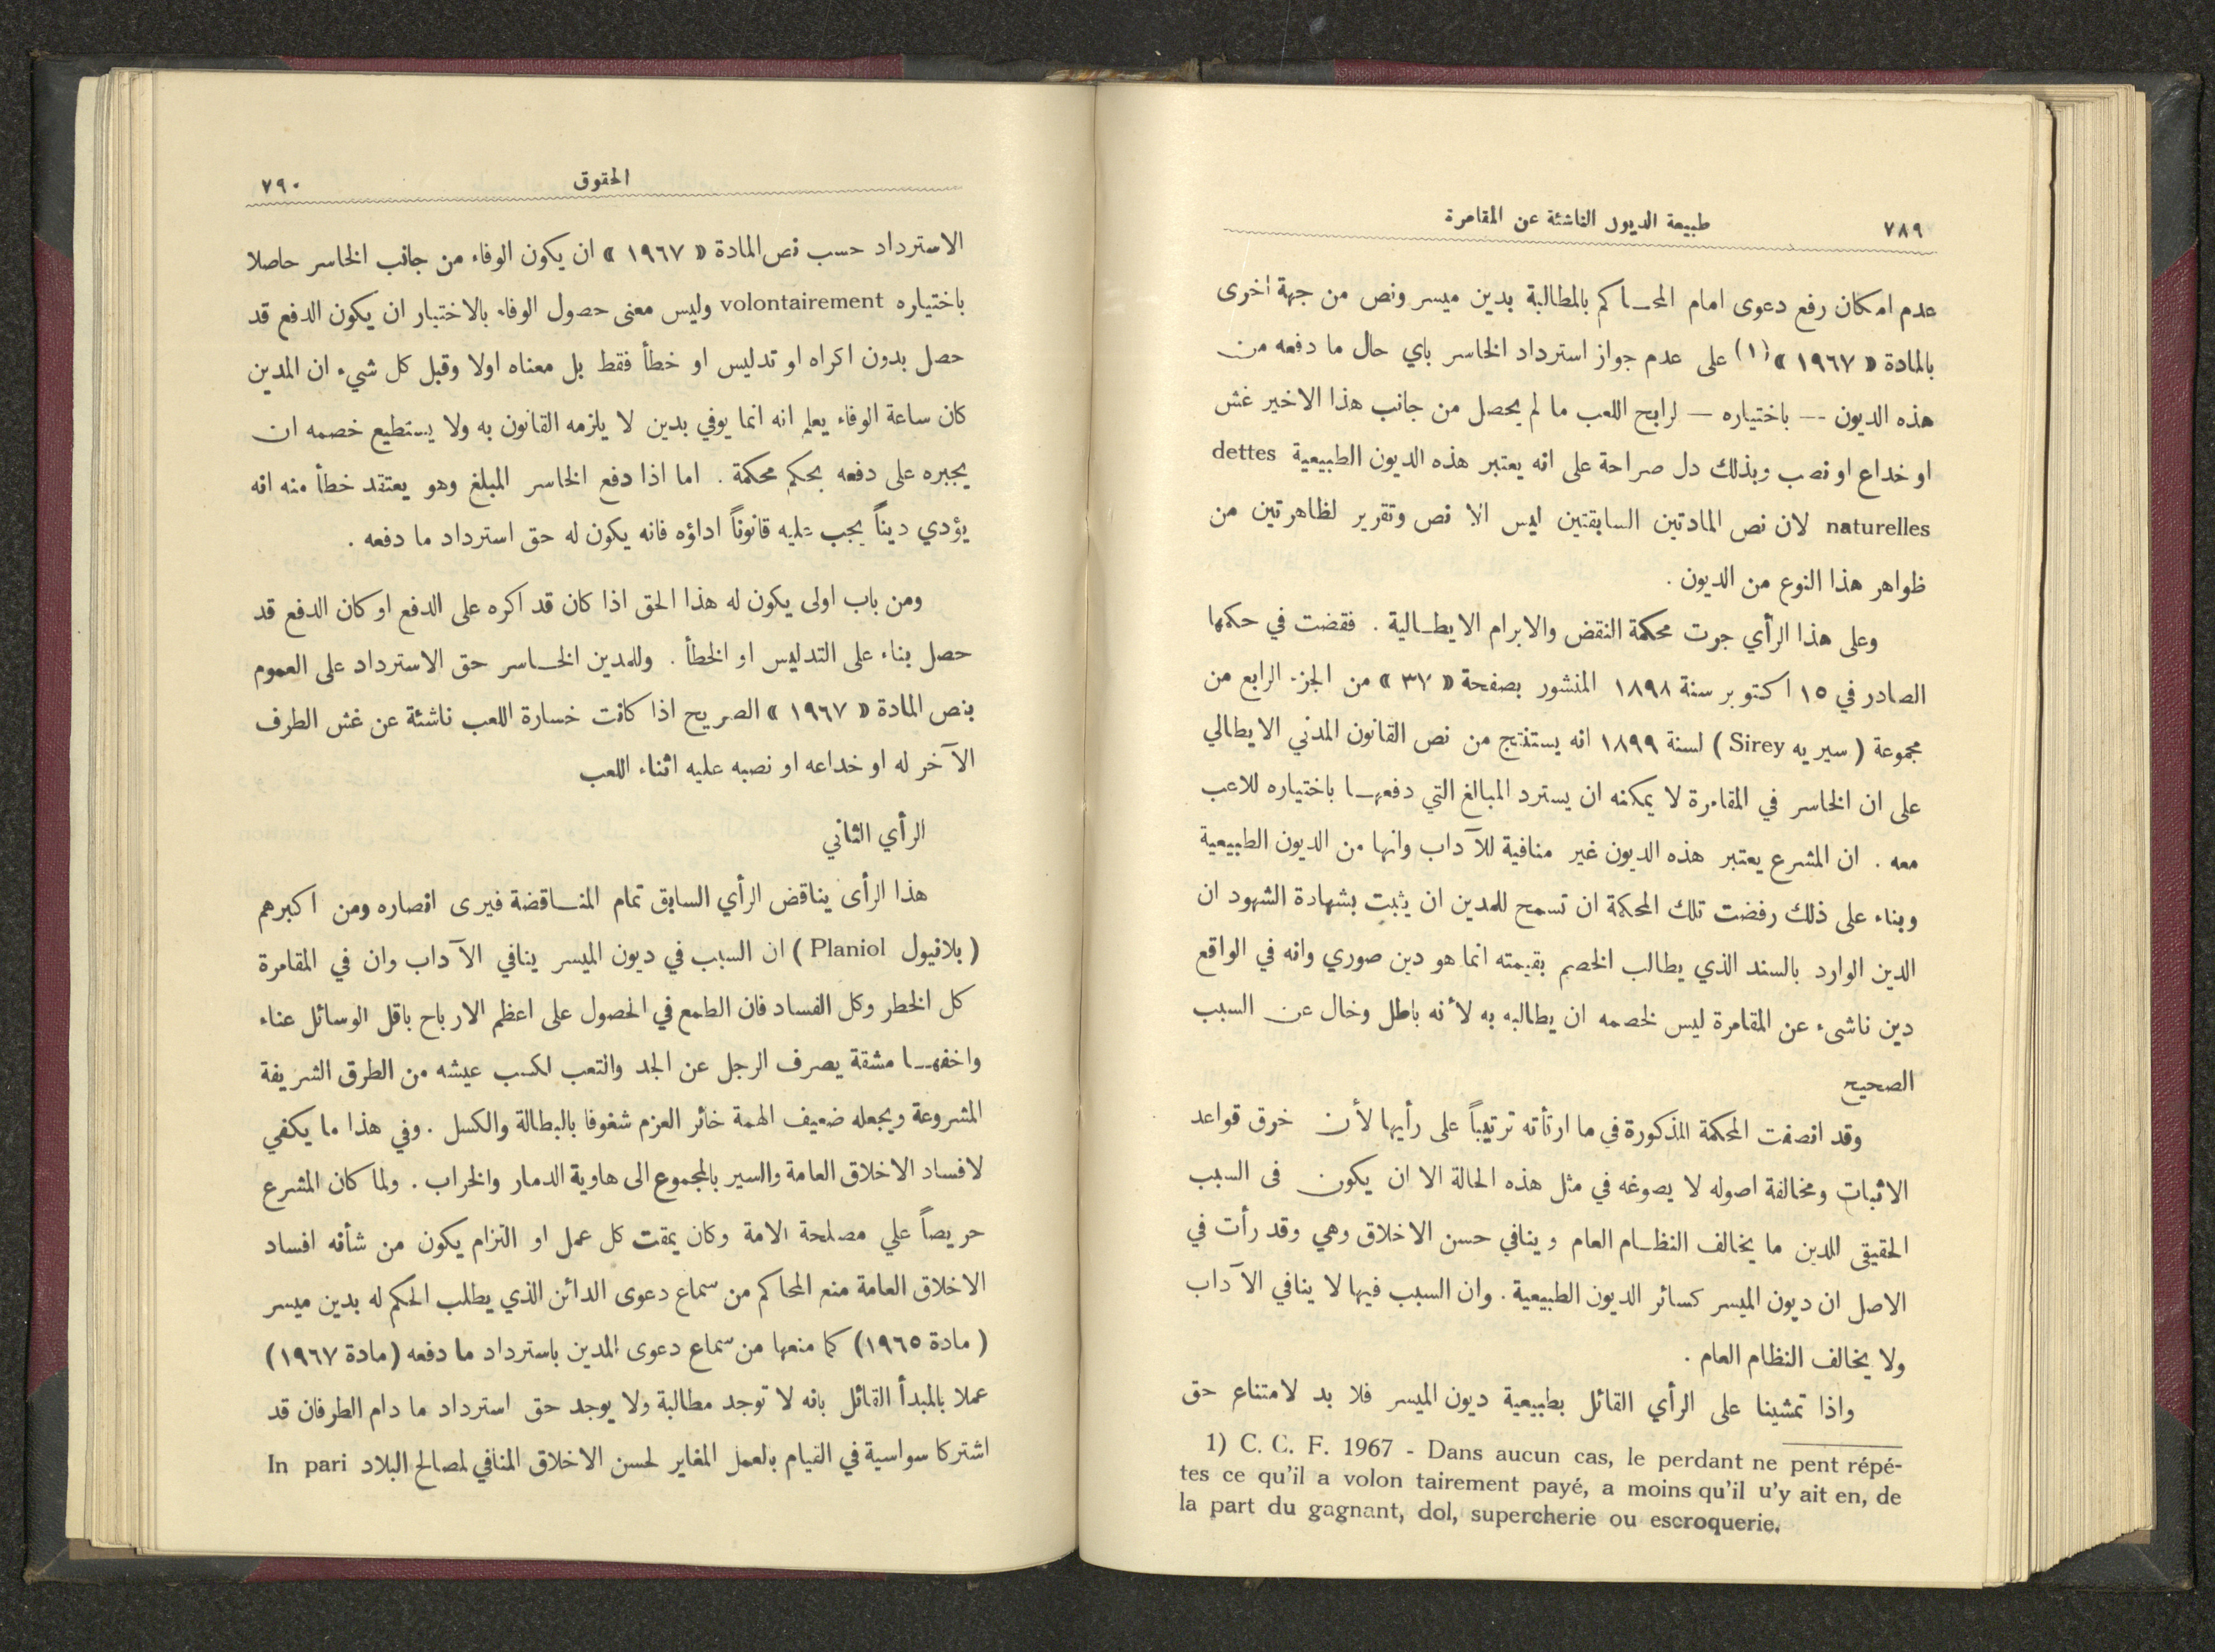 ٧٨٩
طبيعة الديون الناشئة عن المقامرة
عدم امكان رفع دعوى امام المحاكم بالمطالبة بدين ميسر ونص من جهة اخرى
بالمادة « ١٩٦٧ » (١) على عدم جواز استرداد الخاسر باي حال ما دفعه من
هذه الديون — باختياره — لرابح اللعب ما لم يحصل من جانب هذا الاخير غش
او خداع او نصب وبذلك دل صراحة على انه يعتبر هذه الديون الطبيعية dettes
naturelles لان نص المادتين السابقتين ليس الا نص وتقرير لظاهرتين من
ظواهر هذا النوع من الديون .
وعلى هذا الرأي جرت محكمة النقض والابرام الايطالية . فقضت في حكمها
الصادر في ١٥ اكتوبر سنة ١٨٩٨ المنشور بصفحة « ٣٧ » من الجزء الرابع من
مجموعة ( سيريه Sirey ) لسنة ١٨٩٩ انه يستنتج من نص القانون المدني الايطالي
على ان الخاسر في المقامرة لا يمكنه ان يسترد المبالغ التي دفعها باختياره للاعب
معه . ان المشرع يعتبر هذه الديون غير منافية للآداب وانها من الديون الطبيعية
وبناء على ذلك رفضت تلك المحكمة ان تسمح للمدين ان يثبت بشهادة الشهود ان
الدين الوارد بالسند الذي يطالب الخصم بقيمته انما هو دين صوري وانه في الواقع
دين ناشىء عن المقامرة ليس لخصمه ان يطالبه به لأنه باطل وخال عن السبب
الصحيح
وقد انصفت المحكمة المذكورة في ما ارتأته ترتيباً على رأيها لأن خرق قواعد
الاثبات ومخالفة اصوله لا يصوغه في مثل هذه الحالة الا ان يكون فى السبب
الحقيقى للدين ما يخالف النظام العام وينافي حسن الاخلاق وهي وقد رأت في
الاصل ان ديون الميسر كسائر الديون الطبيعية . وان السبب فيها لا ينافي الآداب
ولا يخالف النظام العام .
واذا تمشينا على الرأي القائل بطبيعية ديون الميسر فلا بد لامتناع حق
1) C. C. F. 1967 - Dans aucun cas, le perdant ne pent répé-
tes ce qu'il a volon tairement payé, a moins qu'il u'y ait en, de
la part du gagnant, dol, supercherie ou escroquerie.
الحقوق
٧٩٠
الاسترداد حسب نص المادة « ١٩٦٧ » ان يكون الوفاء من جانب الخاسر حاصلا
باختياره volontairement وليس معنى حصول الوفاء بالاختيار ان يكون الدفع قد
حصل بدون اكراه او تدليس او خطأ فقط بل معناه اولا وقبل كل شيء ان المدين
كان ساعة الوفاء يعلم انه انما يوفي بدين لا يلزمه القانون به ولا يستطيع خصمه ان
يجبره على دفعه بحكم محكمة . اما اذا دفع الخاسر المبلغ وهو يعتقد خطأ منه انه
يؤدي ديناً يجب عليه قانوناً اداؤه فانه يكون له حق استرداد ما دفعه .
ومن باب اولى يكون له هذا الحق اذا كان قد اكره على الدفع او كان الدفع قد
حصل بناء على التدليس او الخطأ . وللمدين الخاسر حق الاسترداد على العموم
بنص المادة « ١٩٦٧ » الصريح اذا كانت خسارة اللعب ناشئة عن غش الطرف
الآخر له او خداعه او نصبه عليه اثناء اللعب
الرأي الثاني
هذا الرأى يناقض الرأي السابق تمام المناقضة فيرى انصاره ومن اكبرهم
( بلانيول Planiol ) ان السبب في ديون الميسر ينافي الآداب وان في المقامرة
كل الخطر وكل الفساد فان الطمع في الحصول على اعظم الارباح باقل الوسائل عناء
واخفها مشقة يصرف الرجل عن الجد والتعب لكسب عيشه من الطرق الشريفة
المشروعة ويجعله ضعيف الهمة خائر العزم شغوفا بالبطالة والكسل . وفي هذا ما يكفي
لافساد الاخلاق العامة والسير بالمجموع الى هاوية الدمار والخراب . ولما كان المشرع
حريصاً علي مصلحة الامة وكان يمقت كل عمل او التزام يكون من شأنه افساد
الاخلاق العامة منع المحاكم من سماع دعوى الدائن الذي يطلب الحكم له بدين ميسر
( مادة ١٩٦٥ ) كما منعها من سماع دعوى المدين باسترداد ما دفعه ( مادة ١٩٦٧ )
عملا بالمبدأ القائل بانه لا توجد مطالبة ولا يوجد حق استرداد ما دام الطرفان قد
اشتركا سواسية في القيام بالعمل المغاير لحسن الاخلاق المنافي لمصالح البلاد In pari